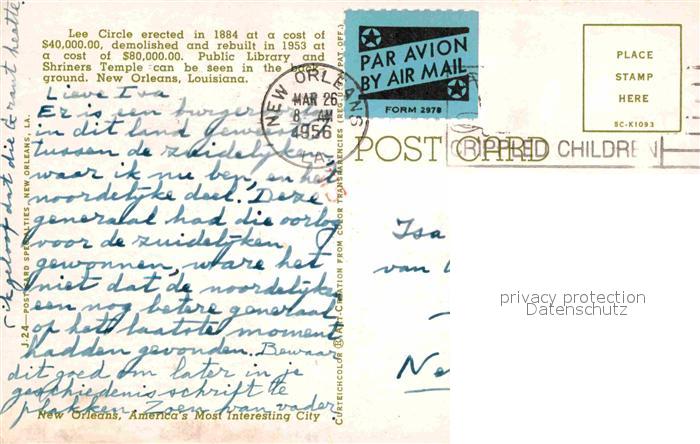 Lee Circle erected in 1884 at a cost of
$40,000.00, demolished and rebuilt in 1953 at
a cost of $80,000.00. Public Library and
Shriners Temple can be seen in the back
ground. New Orleans, Louisiana.
Lieve Isa
Er is een burgeroorlog
in dit land geweest
tussen de zuidelijken,
waar ik nu ben, en het
noordelijke deel. Deze
generaal had die oorlog
voor de zuidelijken
gewonnen, ware het
niet dat de noordelijken
een nog betere generaal
op het laatste moment
hadden gevonden. Bewaar
dit goed om later in je
geschiedenisschrift te
plakken. Zoen van vader.
(ik geloof dat die Grant heette)
New Orleans, America's Most Interesting City
J-24—POSTCARD SPECIALTIES, NEW ORLEANS, LA.
CURTEICHCOLOR ® ART-CREATION FROM COLOR TRANSPARENCIES (REG. U.S. PAT. OFF.)
PAR AVION
BY AIR MAIL
FORM 2978
NEW ORLEANS
MAR 26
8 AM
1956
LA.
POST CARD
CRIPPLED CHILDREN
PLACE
STAMP
HERE
5C-K1093
Isa
van
Ne
privacy protection
Datenschutz